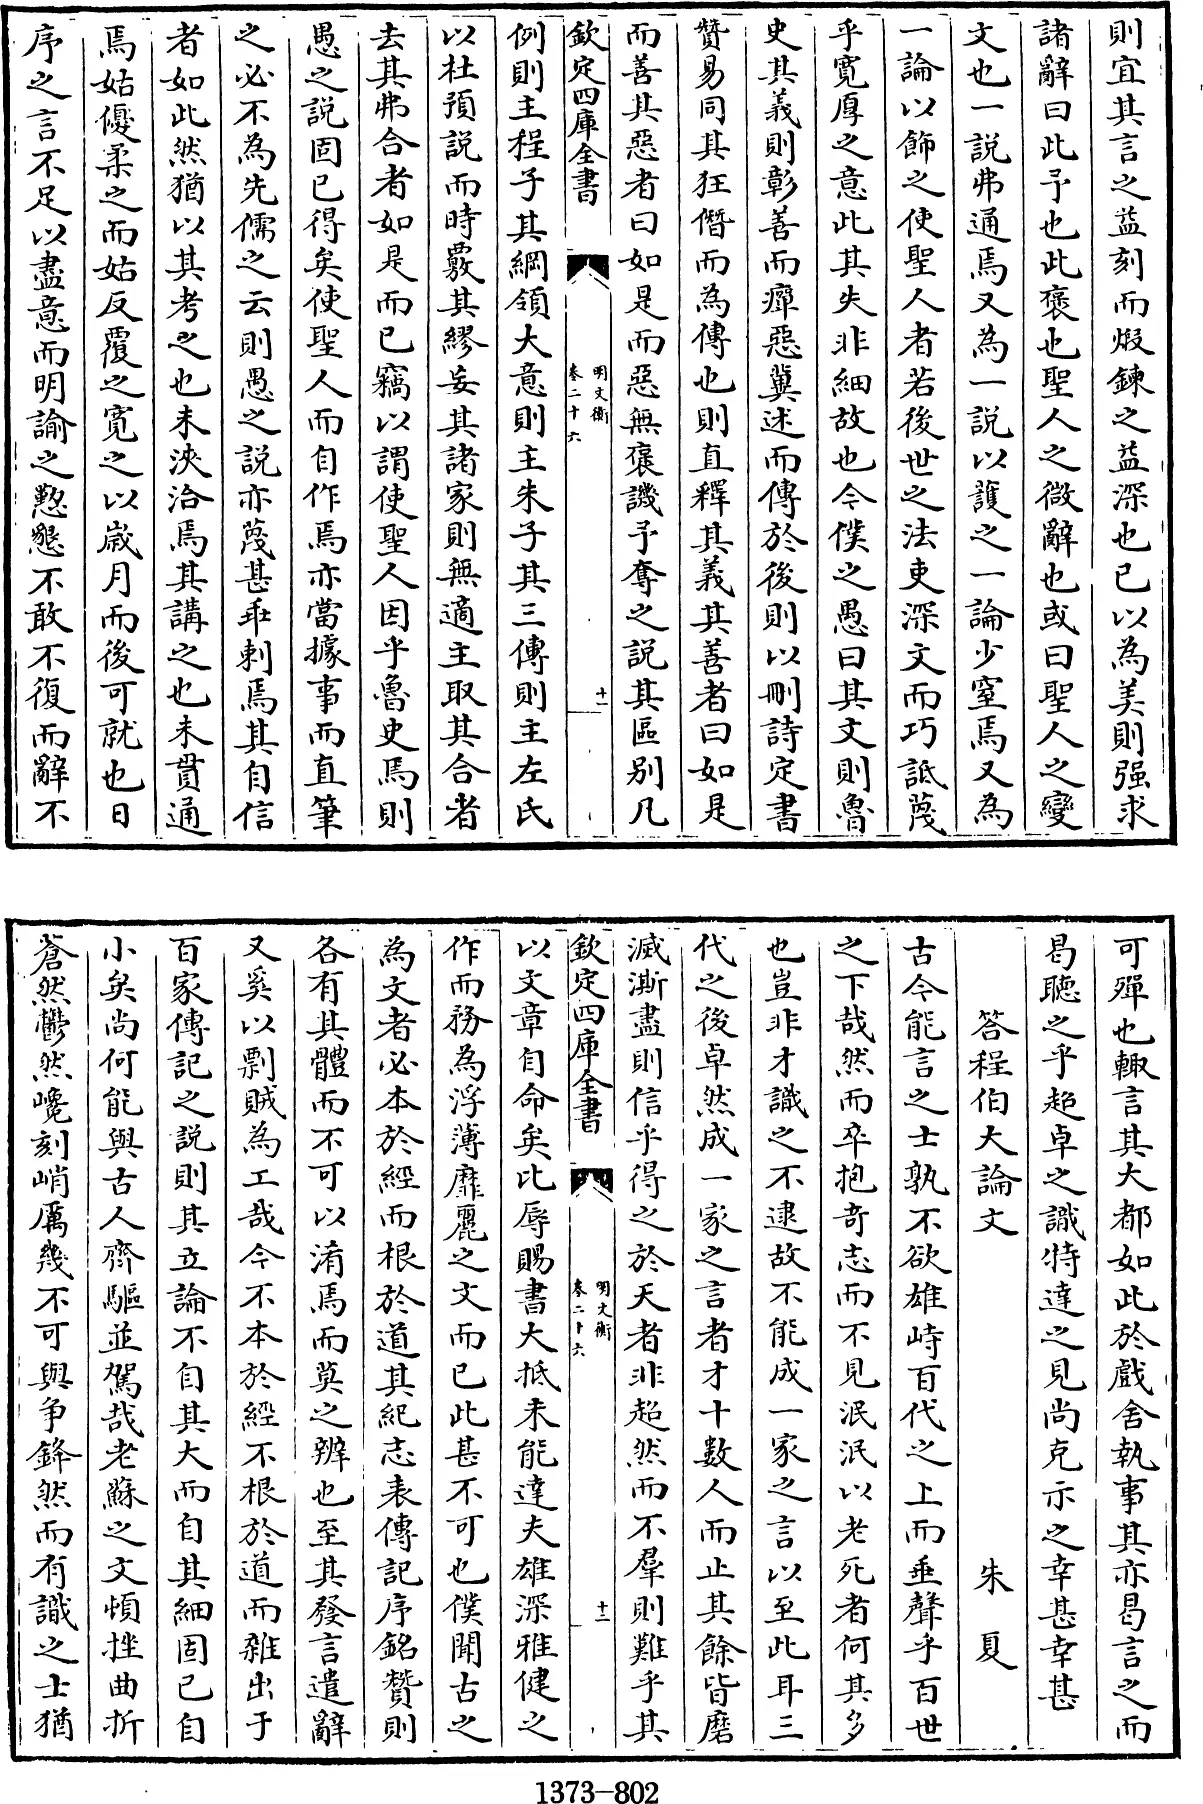 則宜其言之益刻而煅鍊之益深也已以為美則强求
諸辭曰此予也此褒也聖人之微辭也或曰聖人之變
文也一說弗通焉又為一說以護之一論少窒焉又為
一論以飾之使聖人者若後世之法吏深文而巧詆蔑
乎寛厚之意此其失非細故也今僕之愚曰其文則魯
史其義則彰善而癉惡冀述而傳於後則以刪詩定書
贊易同其狂僭而為傳也則直釋其義其善者曰如是
而善其惡者曰如是而惡無褒譏予奪之說其區别凡
欽定四庫全書
明文衡
卷二十六
十一
例則主程子其綱領大意則主朱子其三傳則主左氏
以杜預說而時覈其繆妄其諸家則無適主取其合者
去其弗合者如是而已竊以謂使聖人因乎魯史焉則
愚之說固已得矣使聖人而自作焉亦當據事而直筆
之必不為先儒之云則愚之說亦蔑甚乖剌焉其自信
者如此然猶以其考之也未浹洽焉其講之也未貫通
焉姑優柔之而姑反覆之寛之以嵗月而後可就也日
序之言不足以盡意而明諭之懃懇不敢不復而辭不
可殫也輙言其大都如此於戲舍執事其亦曷言之而
曷聽之乎超卓之識特達之見尚克示之幸甚幸甚
答程伯大論文
朱夏
古今能言之士孰不欲雄峙百代之上而垂聲乎百世
之下哉然而卒抱奇志而不見泯泯以老死者何其多
也豈非才識之不逮故不能成一家之言以至此耳三
代之後卓然成一家之言者才十數人而止其餘皆磨
滅澌盡則信乎得之於天者非超然而不羣則難乎其
欽定四庫全書
明文衡
卷二十六
十二
以文章自命矣比辱賜書大抵未能達夫雄深雅健之
作而務為浮薄靡麗之文而已此甚不可也僕聞古之
為文者必本於經而根於道其紀志表傳記序銘贊則
各有其體而不可以淆焉而莫之辨也至其發言遣辭
又奚以剽賊為工哉今不本於經不根於道而雜出于
百家傳記之說則其立論不自其大而自其細固已自
小矣尚何能與古人齊驅並駕哉老蘇之文頓挫曲折
蒼然鬱然巉刻峭厲幾不可與争鋒然而有識之士猶
1373-802